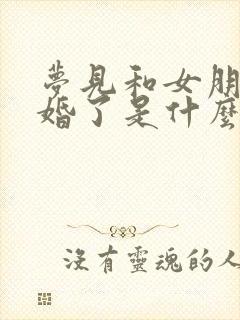 夢見和女朋
婚了是什麼
沒有靈魂的人